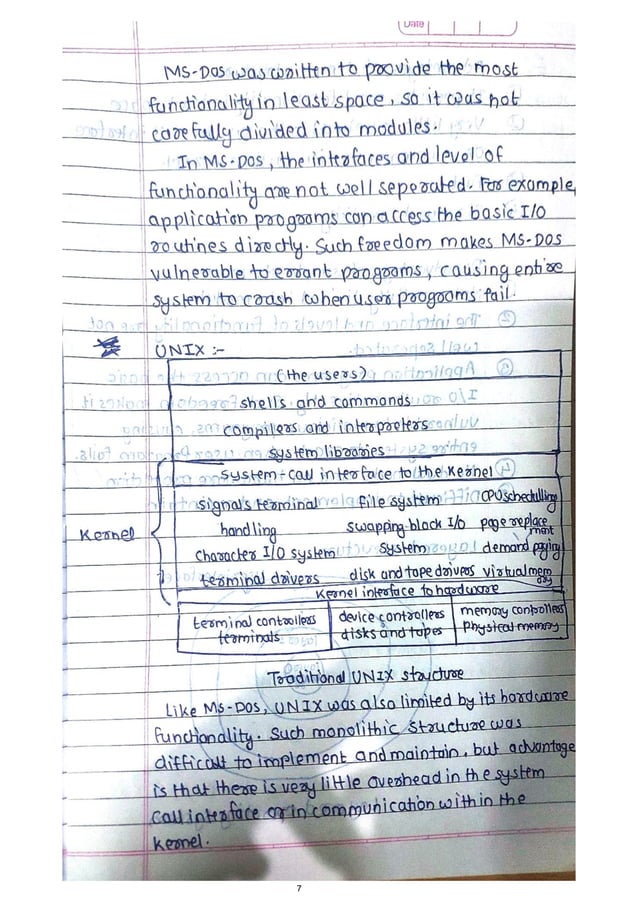 Date
MS-DOS was written to provide the most
functionality in least space, so it was not
carefully divided into modules.
In MS-DOS, the interfaces and level of
functionality are not well seperated. For example,
application programs can access the basic I/O
routines directly. Such freedom makes MS-DOS
vulnerable to errant programs, causing entire
system to crash when user programs fail.
UNIX :-
(the users)
shells and commands
compilers and interpreters
system libraries
system-call interface to the kernel
signals terminal file system CPU scheduling
handling swapping block I/O page replacement
character I/O system system demand paging
terminal drivers disk and tape drivers virtual memory
Kernel
Kernel interface to hardware
terminal controllers device controllers memory controllers
terminals disks and tapes Physical memory
Traditional UNIX structure
Like MS-DOS, UNIX was also limited by its hardware
functionality. Such monolithic structure was
difficult to implement and maintain, but advantage
is that there is very little overhead in the system
call interface or in communication within the
kernel.
7